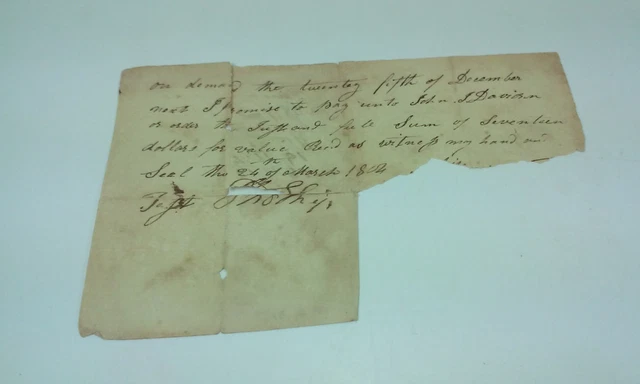 on demand the twenty fifth of December
next I promise to pay unto John J Davison
or order the Just and full Sum of Seventeen
dollars for value Recd as witness my hand and
Seal this 24th of March 180
Test